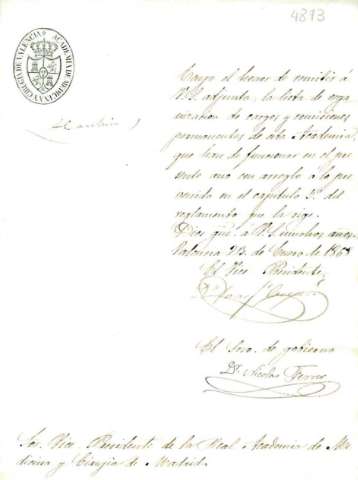 4873
ACADEMIA DE MEDICINA Y CIRUGIA DE VALENCIA
Tengo el honor de remitir á
V.S. adjunta, la lista de orga
nizacion de cargos y comisiones
permanentes de esta Academia,
que han de funcionar en el pre
sente año con arreglo á lo pre
venido en el capitulo 5.º del
reglamento que la rige.
Dios gūe. á V.S. muchos años.
Valencia 23 de Enero de 1868
El Vice Presidente,
El Srio. de gobierno
Dr. Nicolas Ferrer
Sor. Vice Presidente de la Real Academia de Me
dicina y Cirujia de Madrid.